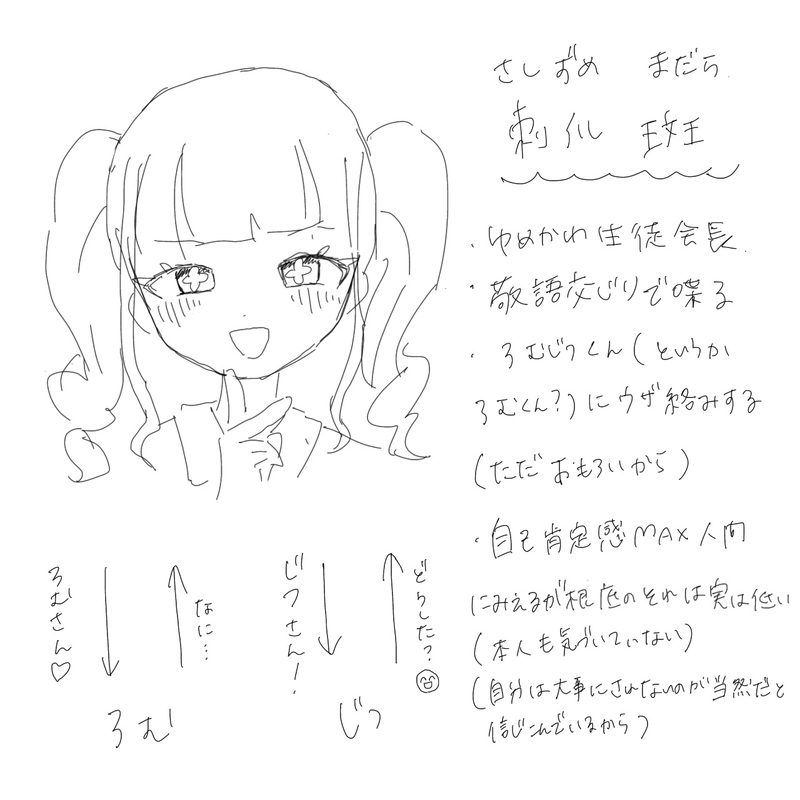 さしずめ まだら
刺儿 斑
・ゆめかわ生徒会長
・敬語交じりで喋る
・ろむじつくん(というか
ろむくん?)にウザ絡みする
(ただおもろいから)
・自己肯定感MAX人間
にみえるが根底のそれは実は低い
(本人も気づいていない)
(自分は大事にされないのが当然だと
信じこんでいるから)
ろむさん♡
なに…
ろむ
じつさん!
どうした?
じつ